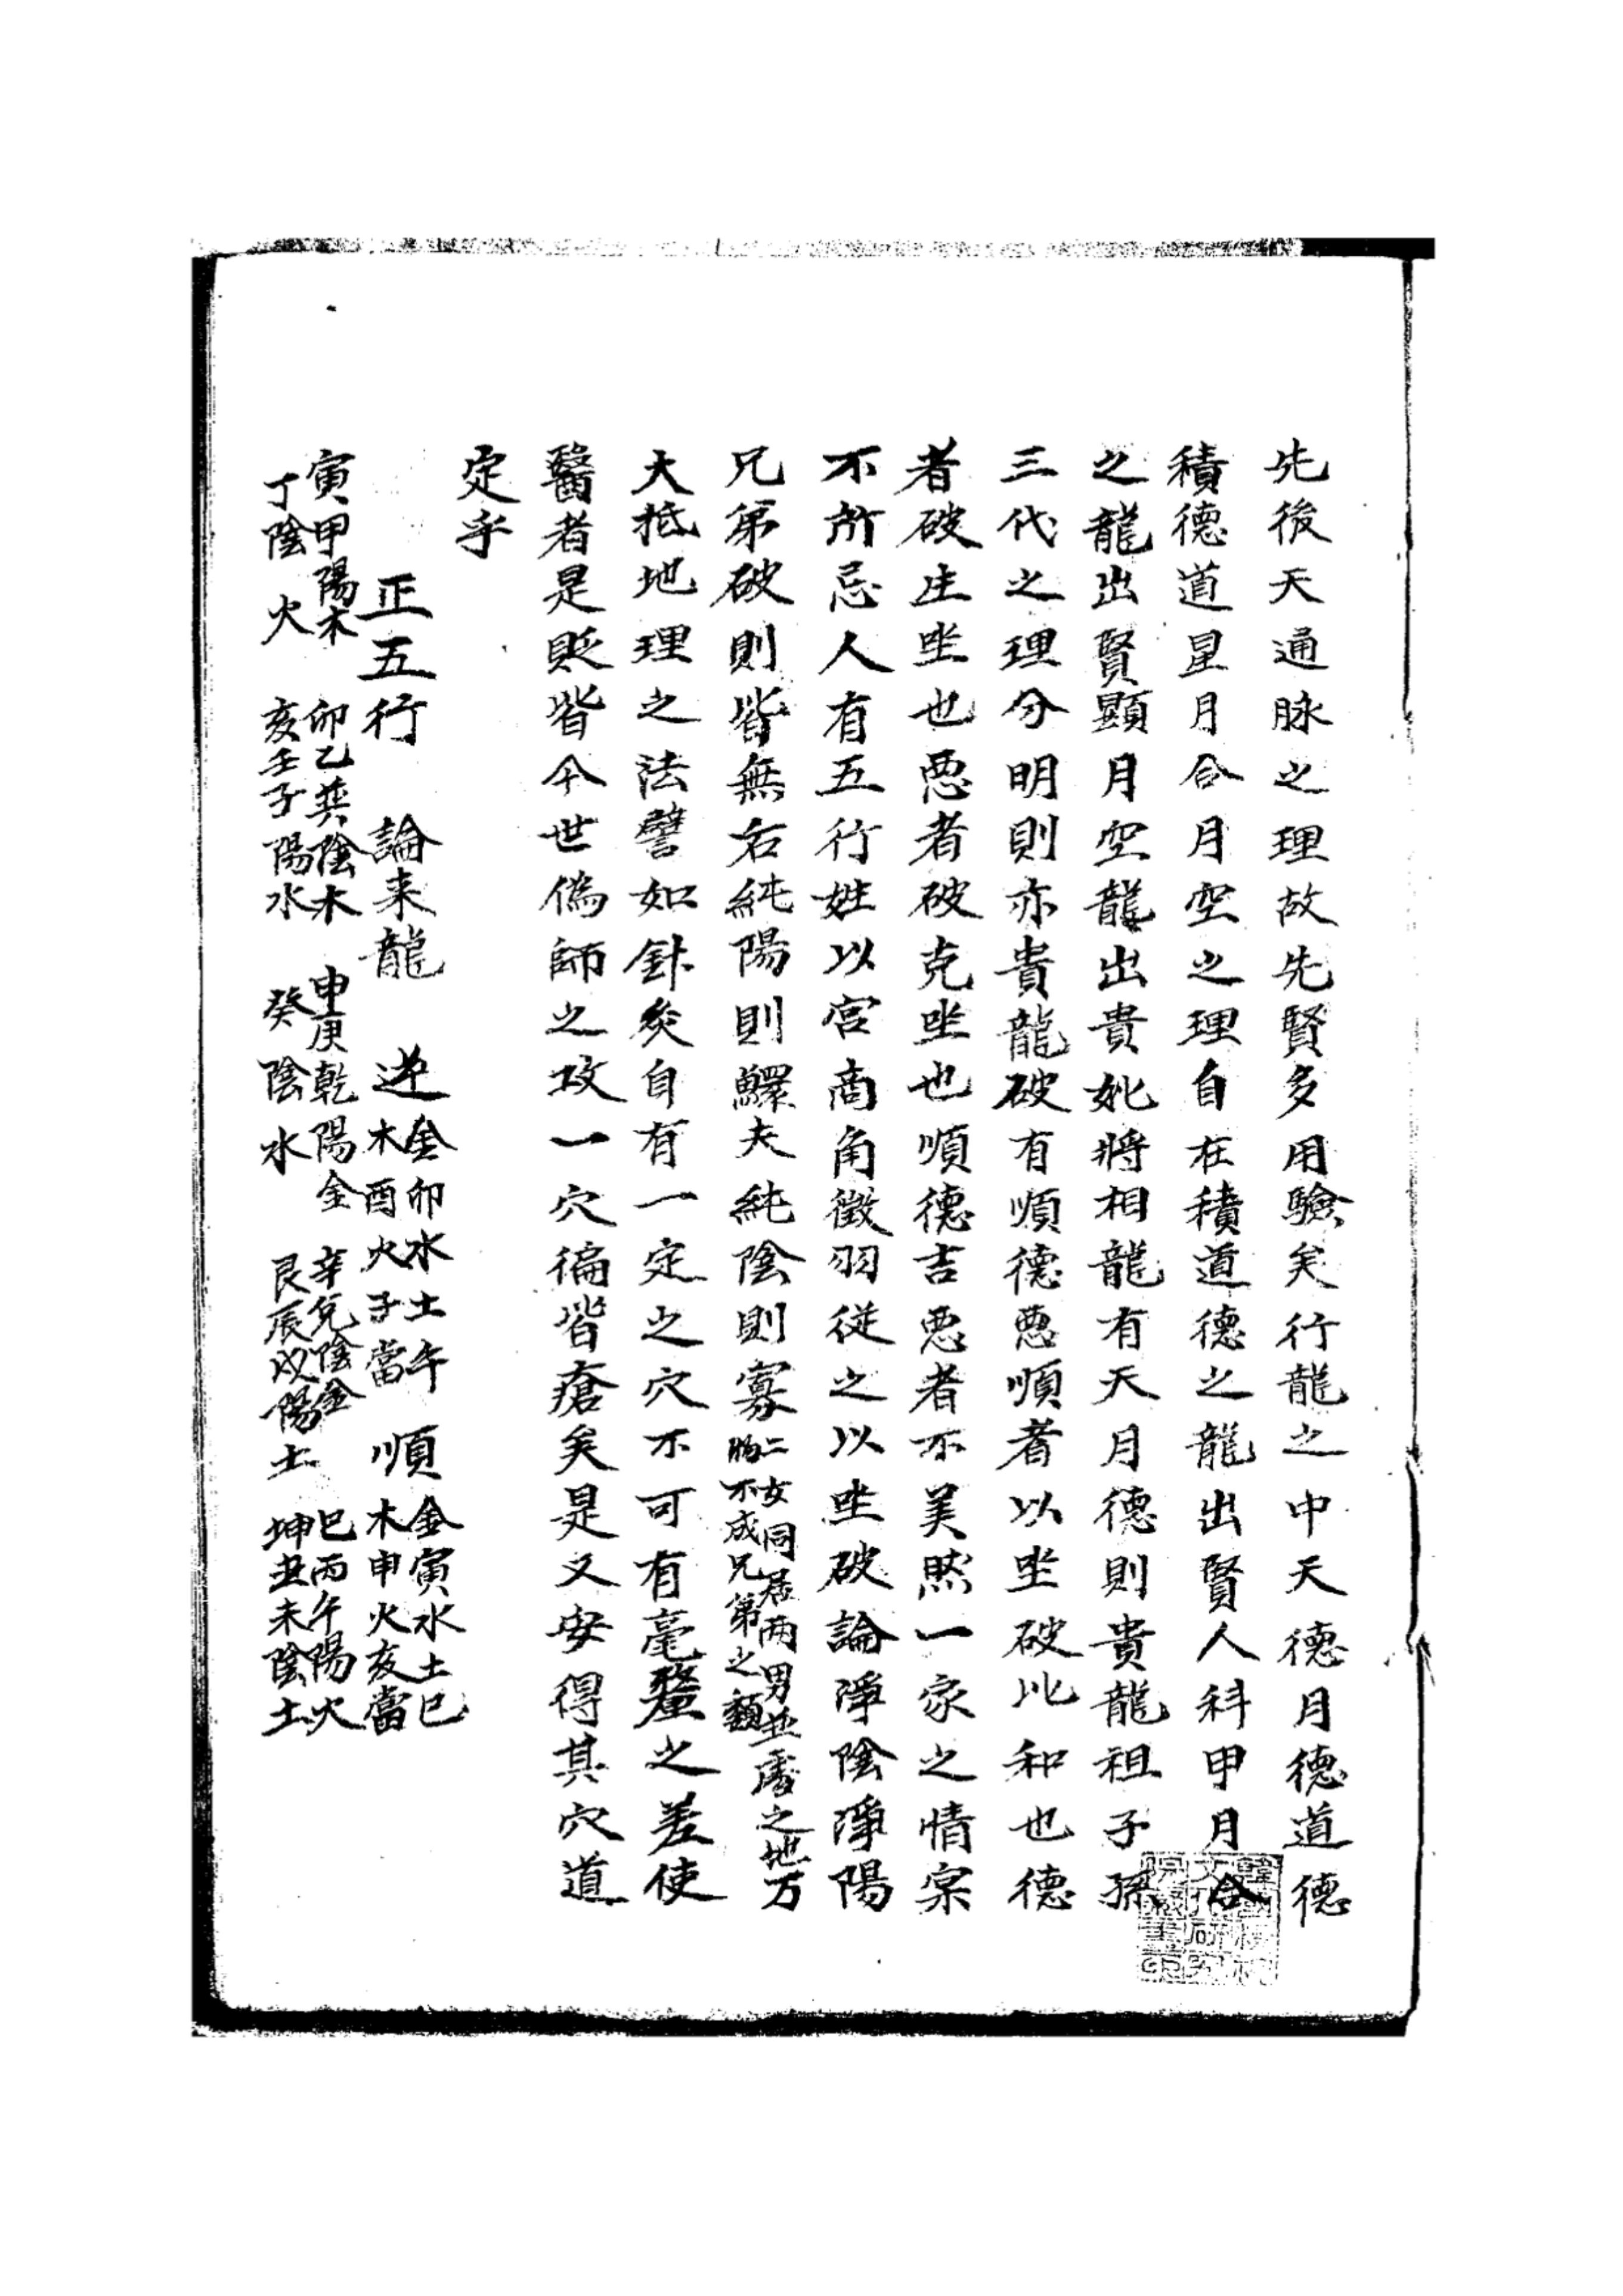 先後天通脉之理故先賢多用驗矣行龍之中天德月德道德
積德道星月合月空之理自在積道德之龍出賢人科甲月合
之龍出賢顯月空龍出貴妣將相龍有天月德則貴龍祖子孫
三代之理分明則亦貴龍破有順德惡順者以坐破比和也德
者破生坐也惡者破克坐也順德吉惡者不美然一家之情宗
不所忌人有五行姓以宮商角徵羽從之以坐破論淨陰淨陽
兄弟破則皆無右純陽則鰥夫純陰則寡
二女同居兩男並處之地万
物不成兄弟之類
大抵地理之法譬如針灸自有一定之穴不可有毫釐之差使
醫者是貶皆今世偽師之攻一穴徧皆瘡矣是又安得其穴道
定乎
正五行 論来龍 逆
金卯水土午
木酉火子當
順
金寅水土巳
木申火亥當
寅甲陽木 卯乙巽陰木 申庚乾陽金 辛兌陰金 巳丙午陽火
丁陰火 亥壬子陽水 癸陰水 艮辰戌陽土 坤丑未陰土